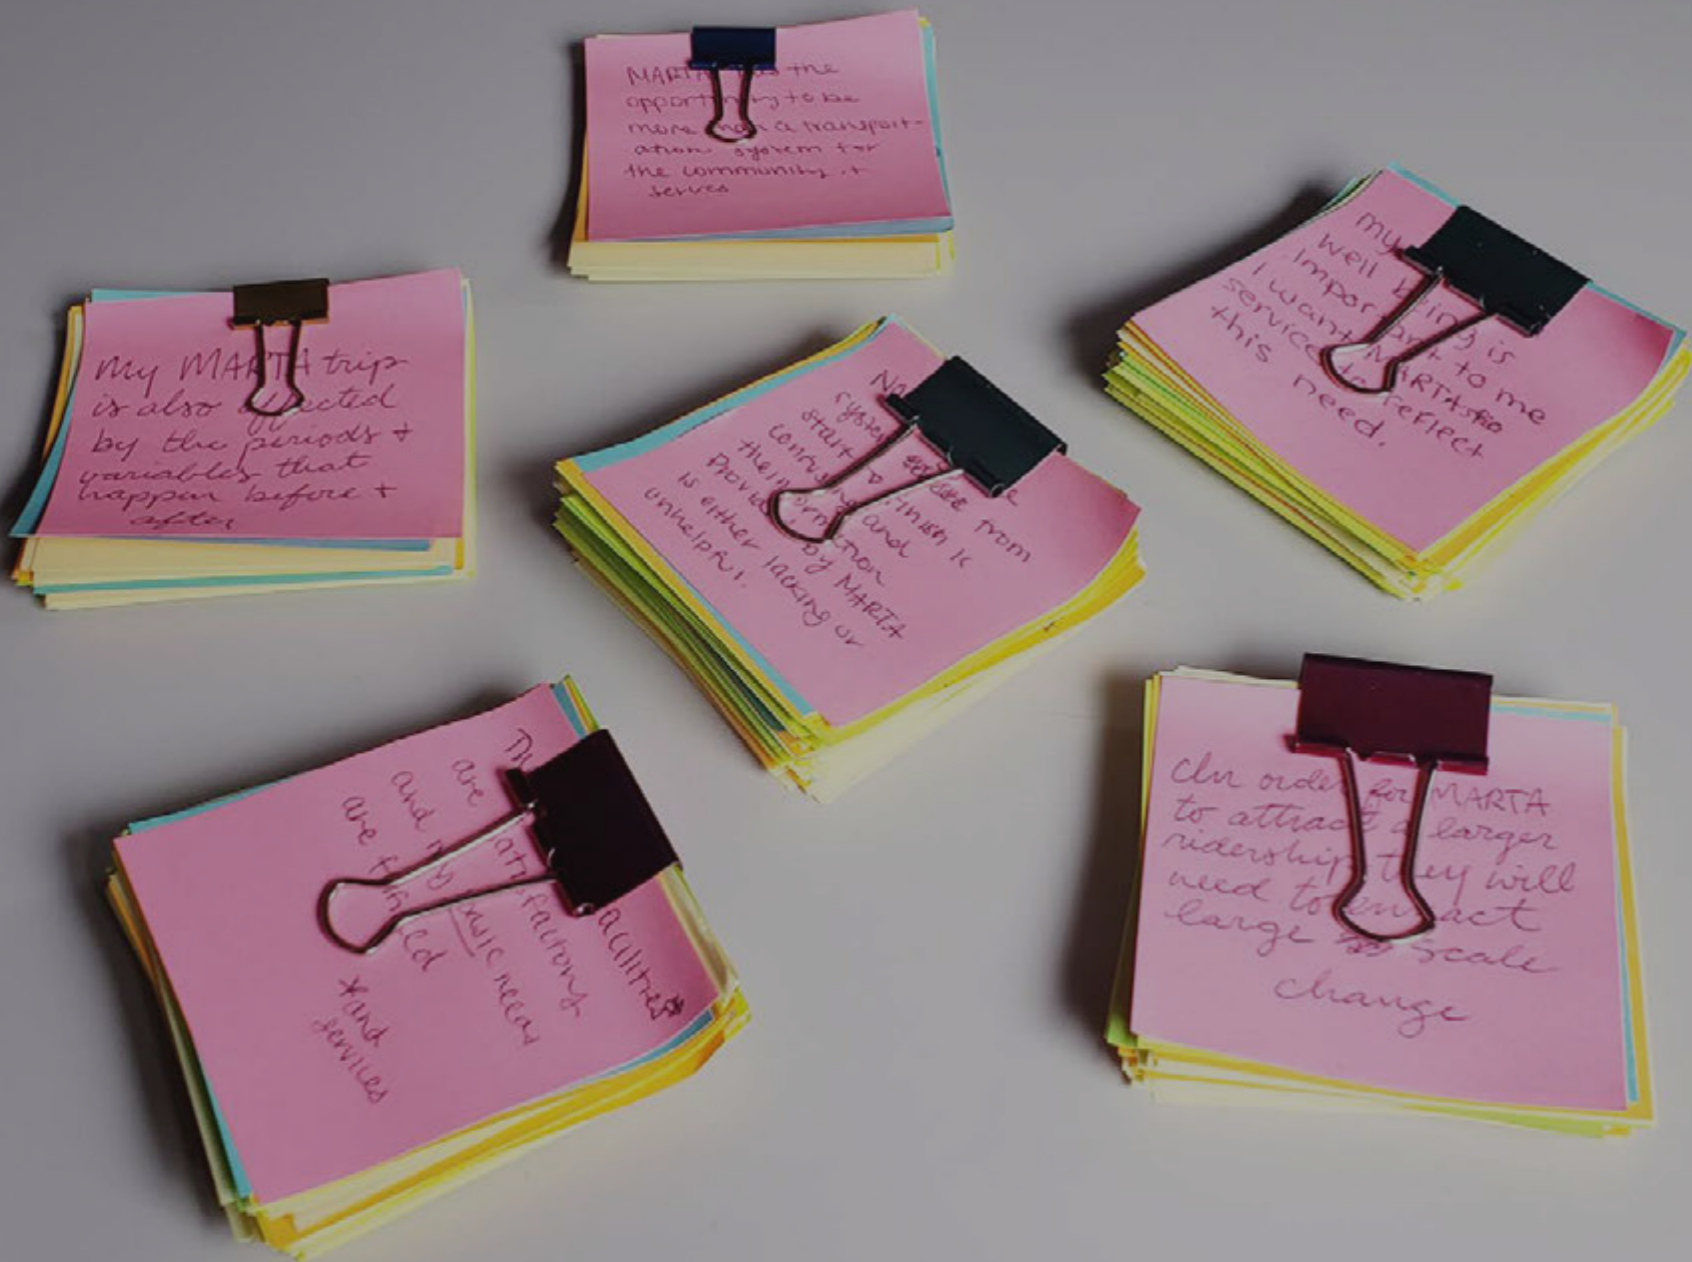 MARTA has the
opportunity to be
more than a transport-
ation system for
the community it
serves
My MARTA trip
is also affected
by the periods +
variables that
happen before +
after
system from
start to finish is
confusing and
the information
provided by MARTA
is either lacking or
unhelpful.
my
well being is
important to me
I want MARTA
service to reflect
this need.
facilities*
are satisfactory
and my basic needs
are fulfilled
*and
services
In order for MARTA
to attract a larger
ridership they will
need to enact
large scale
change